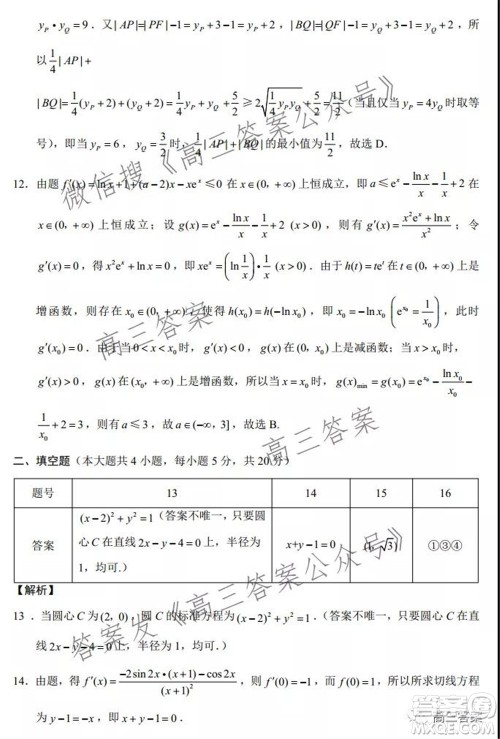 y_P·y_Q=9．又|AP|=|PF|−1=y_P+3−1=y_P+2，|BQ|=|QF|−1=y_Q+3−1=y_Q+2，所
以1/4|AP|+
|BQ|=1/4(y_P+2)+(y_Q+2)=1/4y_P+y_Q+5/2≥2√(1/4y_Py_Q)+5/2=11/2（当且仅当y_P=4y_Q时取等
号），即当y_P=6，y_Q=3/2时，1/4|AP|+|BQ|的最小值为11/2，故选D．
12．由题f′(x)=lnx+1+(a−2)x−xe^x≤0在x∈(0，+∞)上恒成立，即a≤e^x−lnx/x−1/x+2在
x∈(0，+∞)上恒成立；设g(x)=e^x−lnx/x−1/x+2（x>0），则有g′(x)=(x²e^x+lnx)/x²；令
g′(x)=0，得x²e^x+lnx=0，即xe^x=(ln1/x)·1/x（x>0）．由于h(t)=te^t在t∈(0，+∞)上是
增函数，则存在x₀∈(0，+∞)，使得h(x₀)=h(−lnx₀)，即x₀=−lnx₀(e^x₀=1/x₀)，此时
g′(x₀)=0．由于当0<x<x₀时，g′(x)<0，g(x)在x∈(0，x₀)上是减函数；当x>x₀时，
g′(x)>0，g(x)在x∈(x₀，+∞)上是增函数，所以当x=x₀时，g(x)min=g(x₀)=e^x₀−lnx₀/x₀−
1/x₀+2=3，则有a≤3，故a∈(−∞，3]，故选B．
二、填空题（本大题共4小题，每小题5分，共20分）
题号 13 14 15 16
答案 (x−2)²+y²=1（答案不唯一，只要圆心C在直线2x−y−4=0上，半径为1，均可．） x+y−1=0 (1，√3) ①③④
【解析】
13．当圆心C为(2，0)，圆C的标准方程为(x−2)²+y²=1．（答案不唯一，只要圆心C在直
线2x−y−4=0上，半径为1，均可．）
14．由题，得f′(x)=(−2sin2x·(x+1)−cos2x)/(x+1)²，则f′(0)=−1，而f(0)=1，所以所求切线方程
为y−1=−x，即x+y−1=0．
微信搜《高三答案公众号》
高三答案
高三答案
答案发《高三答案公众号》
高三答案